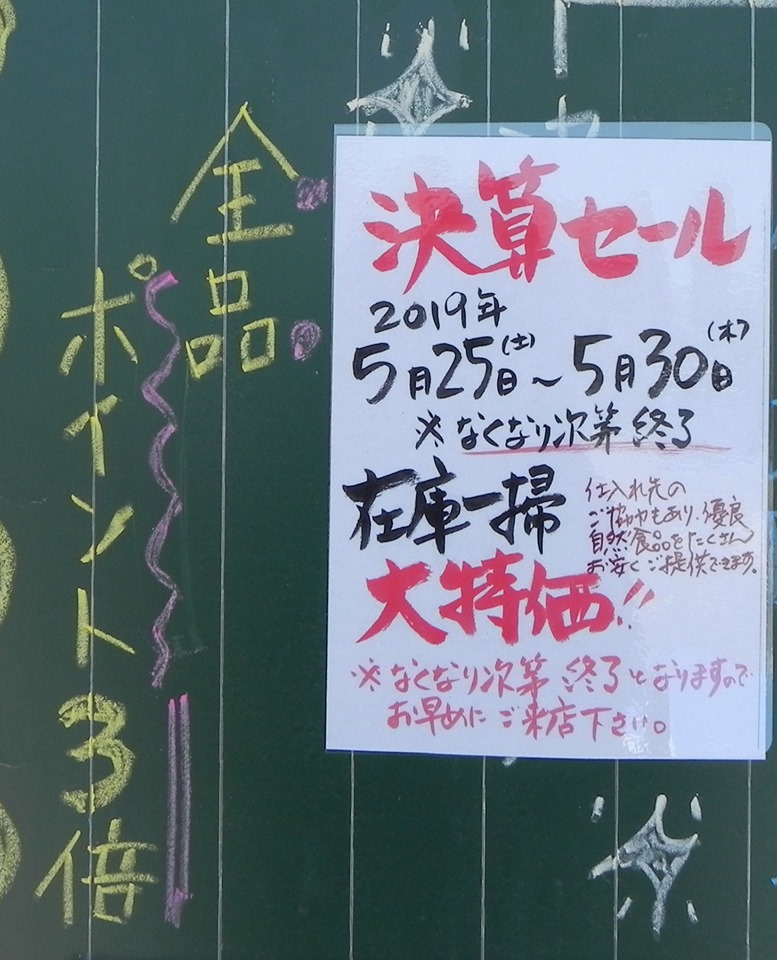 決算セール
2019年
5月25日(土)～5月30日(木)
※なくなり次第終了
在庫一掃
仕入れ先の
ご協力もあり、優良
自然食品をたくさん
お安くご提供できます。
大特価!!
※なくなり次第終了となりますので
お早めにご来店下さい。
全品
ポイント3倍